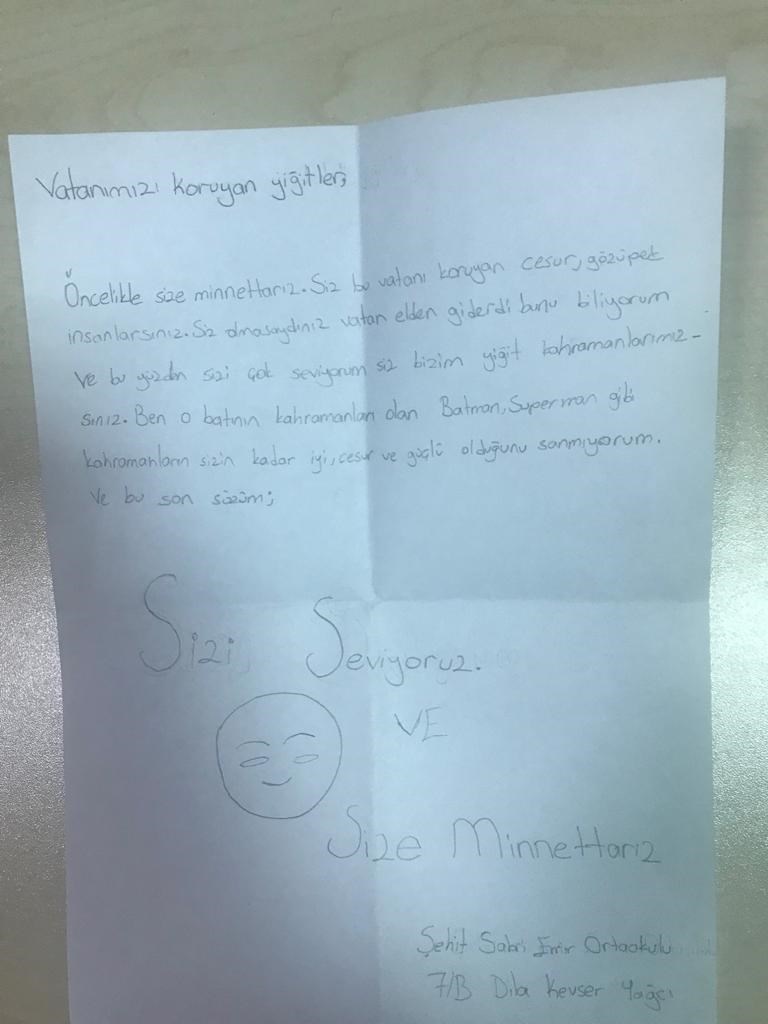 Vatanımızı koruyan yiğitler;
Öncelikle size minnettarız. Siz bu vatanı koruyan cesur, gözüpek
insanlarsınız. Siz olmasaydınız vatan elden giderdi bunu biliyorum
ve bu yüzden sizi çok seviyorum siz bizim yiğit kahramanlarımız-
sınız. Ben o batının kahramanları olan Batman, Superman gibi
kahramanların sizin kadar iyi, cesur ve güçlü olduğunu sanmıyorum.
Ve bu son sözüm;
Sizi Seviyoruz.
VE
Size Minnettarız
Şehit Sabri Emir Ortaokulu
7/B Dila Kevser Yağcı